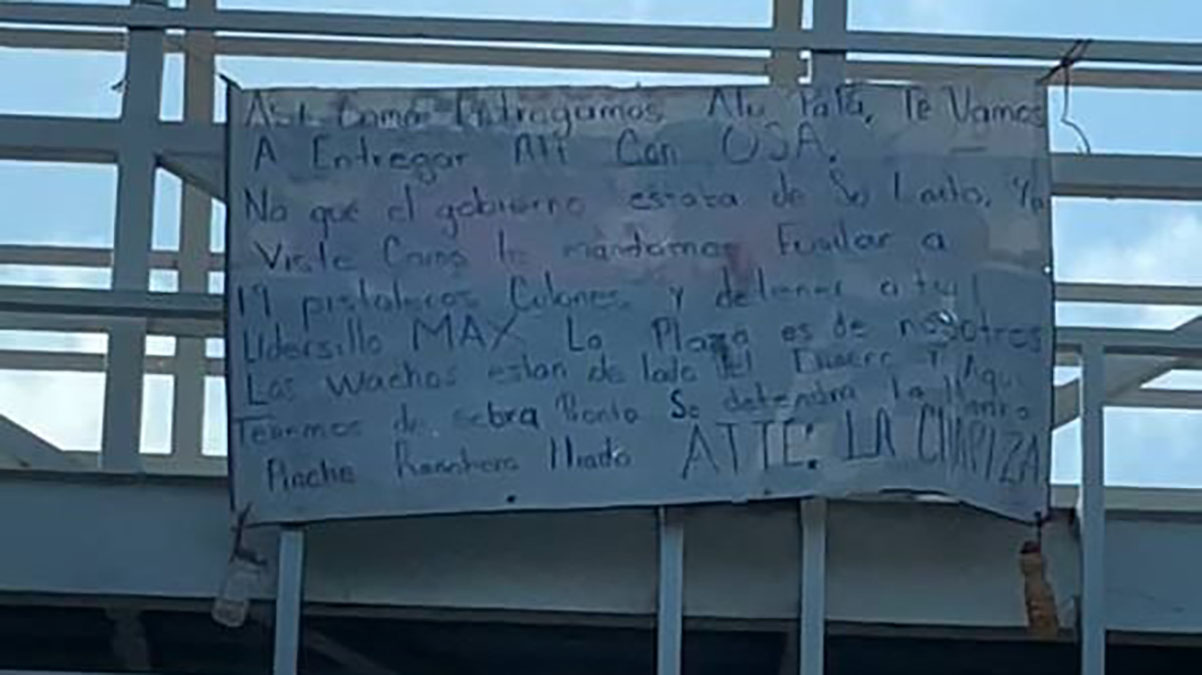 Asi Como Entragamos Atu Papá, Te Vamos
A Entregar Ati Con USA.
No que el gobierno estaba de Su Lado, Ya
Viste Como lo mandamos Fusilar a
19 pistoleros Culones y detener a tu
lidersillo MAX La Plaza es de nosotros
Los Wachos estan de lado del Dinero Y Aqui
Tenemos de sobra Pronto Se detendra la
Pinche Ranchero ATTE: LA CHAPIZA